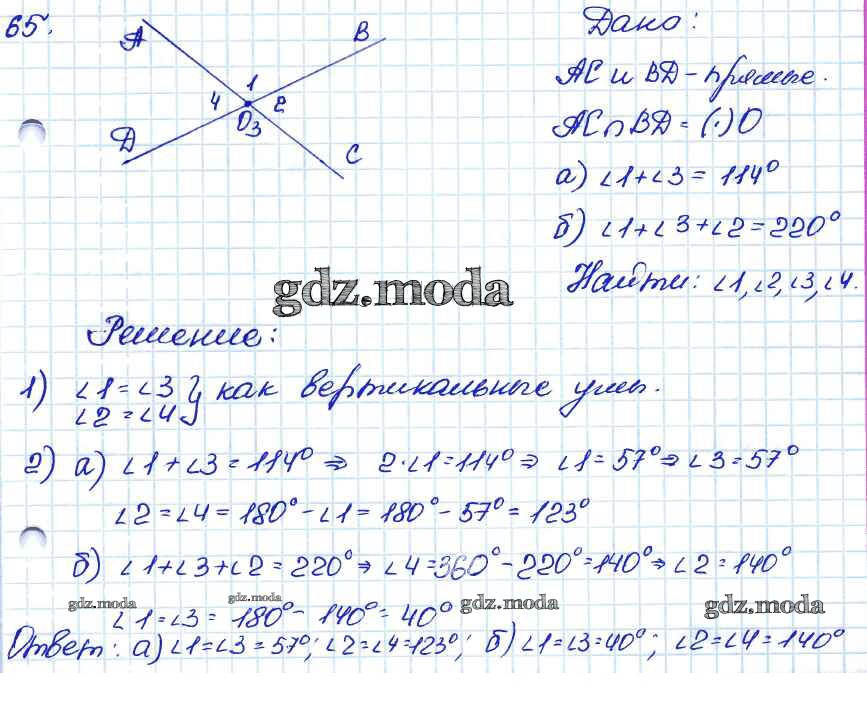 65.
A
B
1
4 2
O 3
D
C
Дано:
AC и BD - прямые.
AC ∩ BD = (·) O
а) ∠1+∠3 = 114°
б) ∠1+∠3+∠2=220°
Найти: ∠1, ∠2, ∠3, ∠4.
gdz.moda
Решение:
1) ∠1 = ∠3
∠2 = ∠4 } как вертикальные углы.
2) а) ∠1+∠3 = 114° ⇒ 2·∠1=114° ⇒ ∠1=57° ⇒ ∠3=57°
∠2 = ∠4 = 180° - ∠1 = 180° - 57° = 123°
б) ∠1+∠3+∠2 = 220° ⇒ ∠4=360° - 220°=140° ⇒ ∠2=140°
gdz.moda gdz.moda gdz.moda gdz.moda
∠1=∠3 = 180° - 140° = 40°
Ответ: а) ∠1=∠3=57°; ∠2=∠4=123°; б) ∠1=∠3=40°; ∠2=∠4=140°